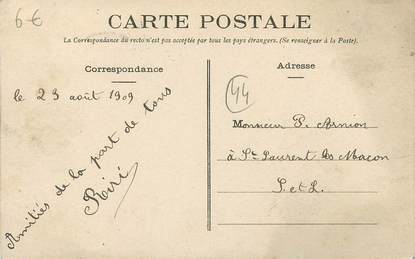 6€
CARTE POSTALE
La Correspondance du recto n'est pas acceptée par tous les pays étrangers. (Se renseigner à la Poste).
Correspondance
le 23 août 1909
Amitiés de la part de tous
Riri
Adresse
44
Monsieur P. Arnion
à St Laurent les Macon
S. et L.